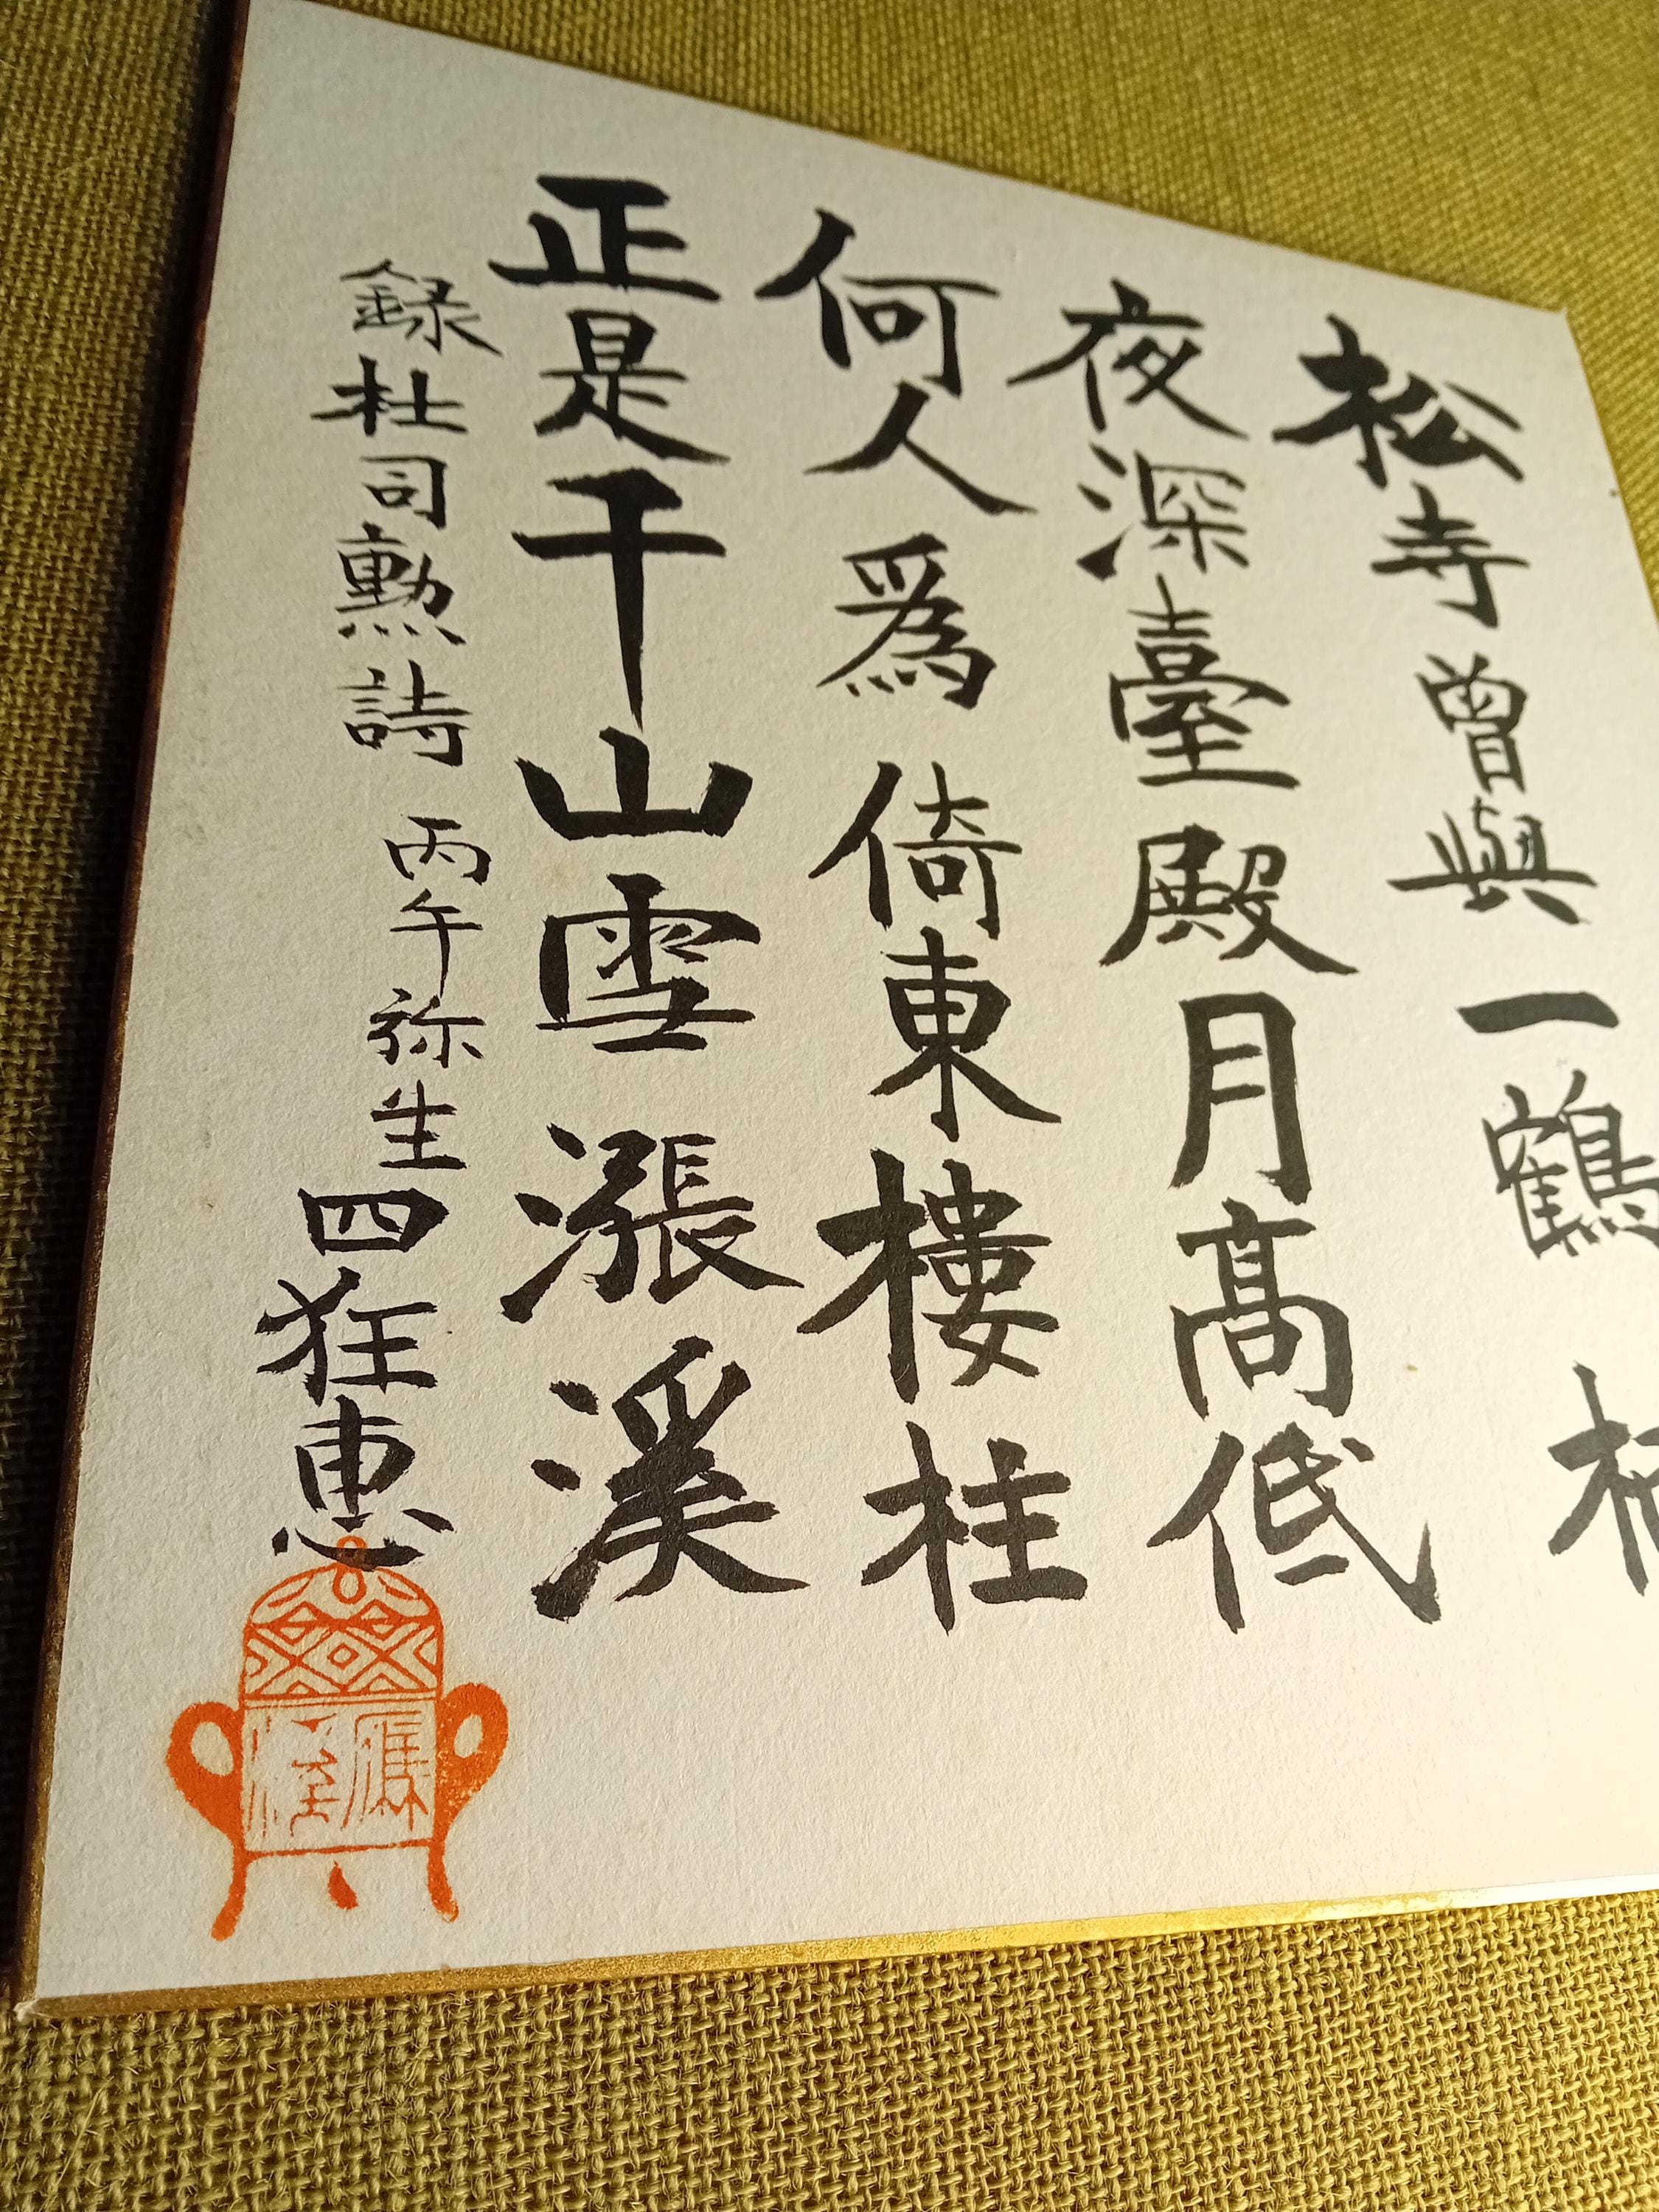 松寺曾與一鶴
夜深臺殿月高低
何人爲倚東樓柱
正是千山雪漲溪
録杜司勲詩 丙午弥生 四狂惠